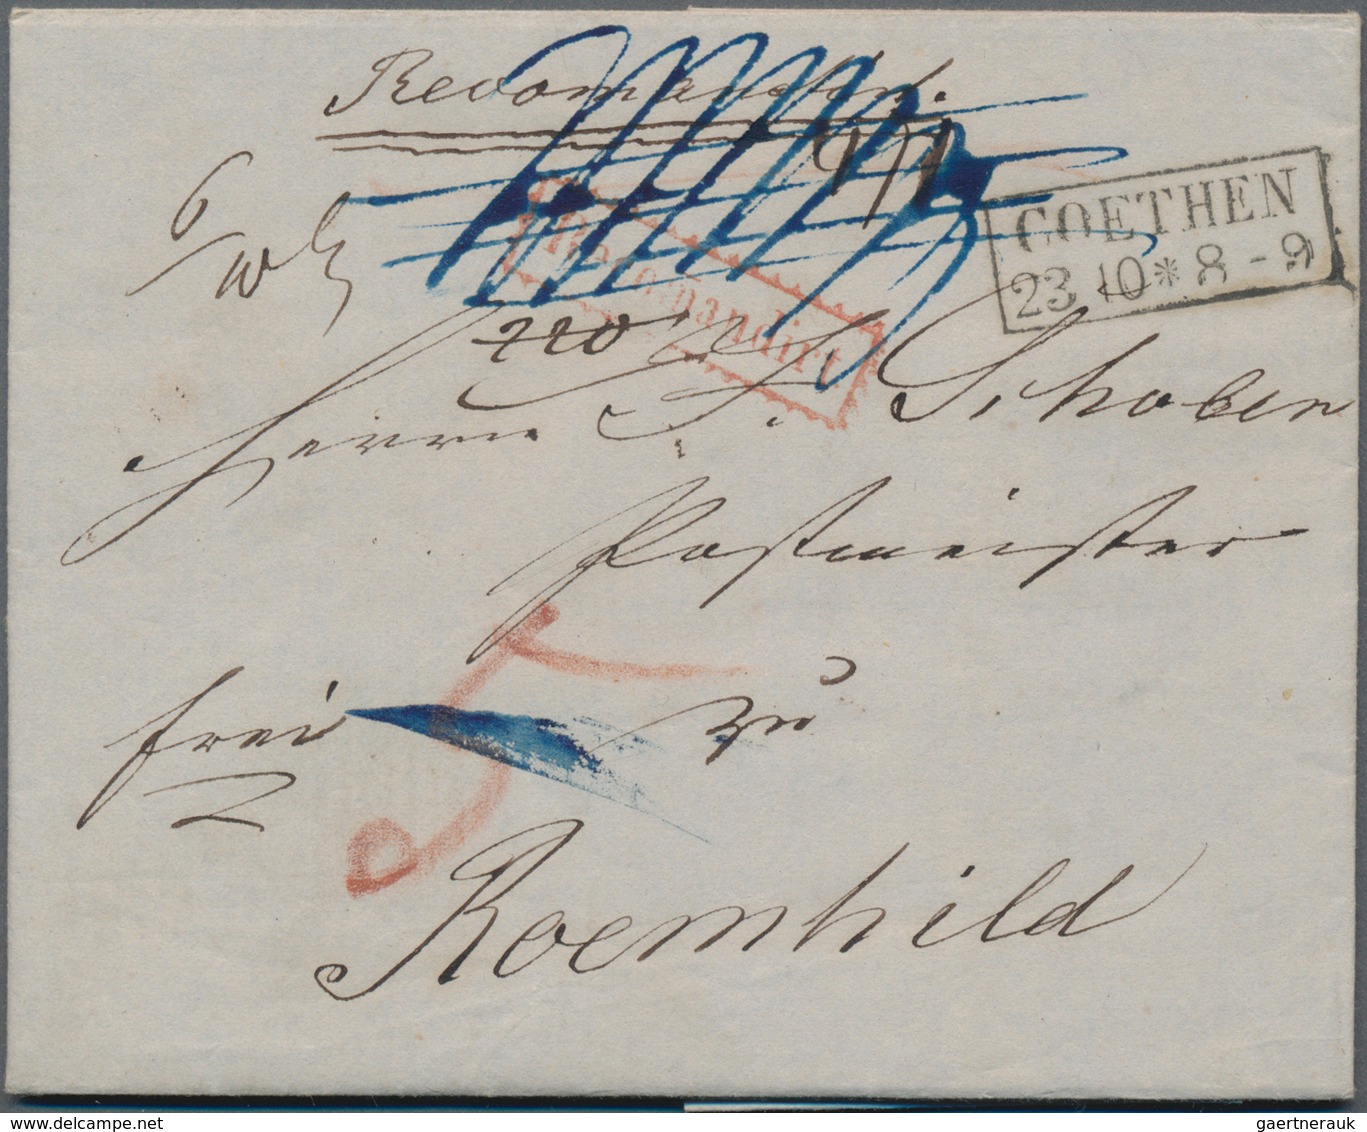 Recomandirt.
COETHEN
23 10 * 8 - 9
Recomandirt
220
Herrn J. Schober
Postmeister
frei
zu
Roemhild
delcampe.net
gaertnerauk